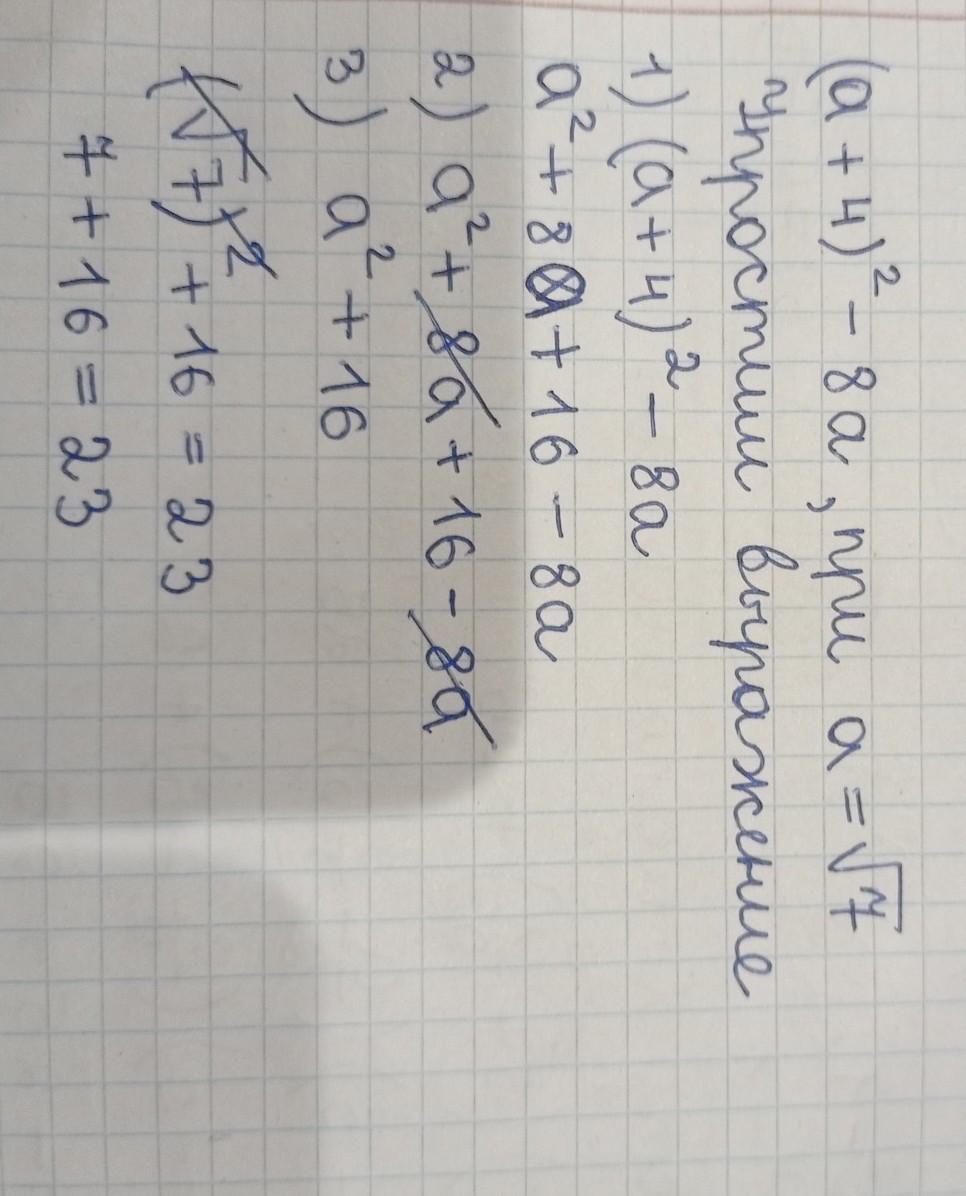 (a + 4)² - 8a, при a = √7
Упростим выражение
1) (a + 4)² - 8a
a² + 8a + 16 - 8a
2) a² + 8a + 16 - 8a
3) a² + 16
(√7)² + 16 = 23
7 + 16 = 23